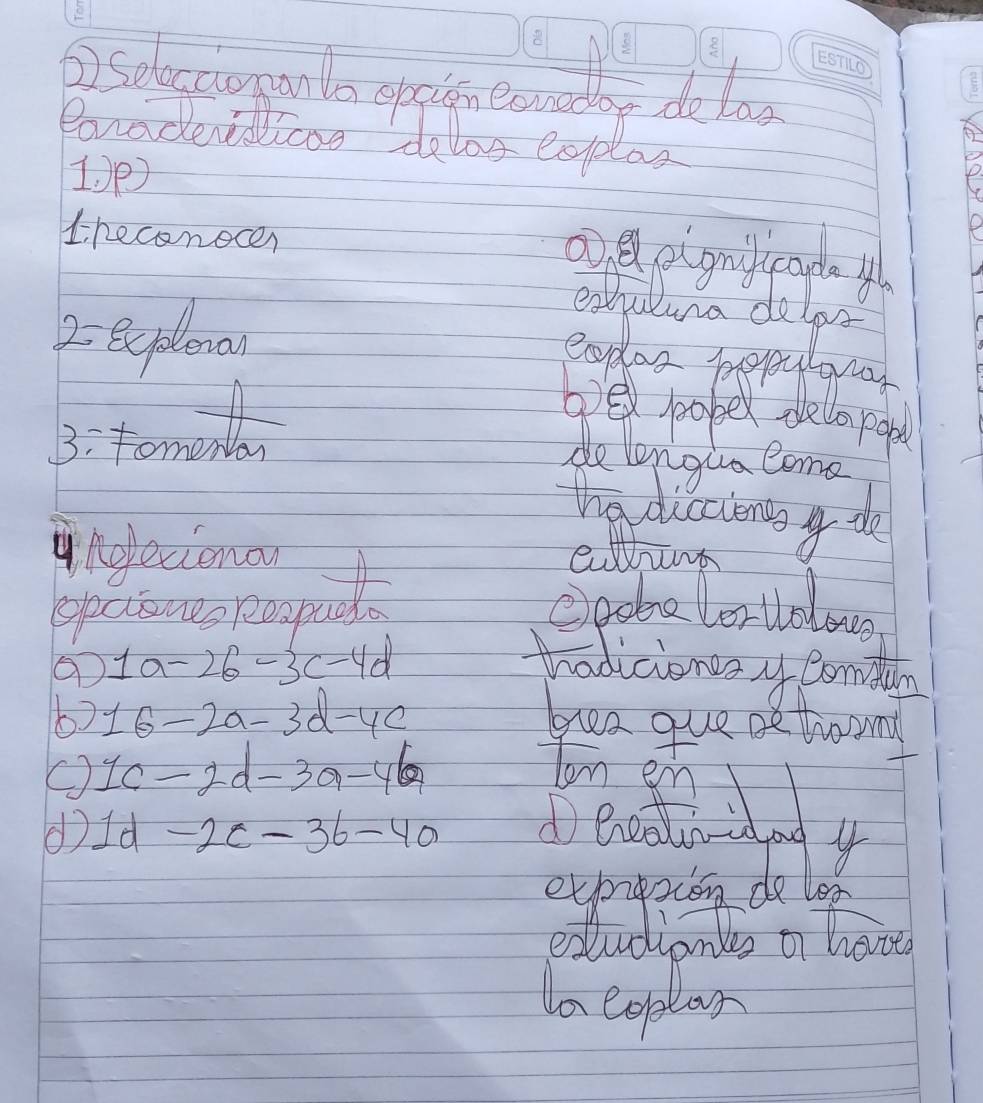 Tem
Día
Mes
Año
ESTILO
Tema
2) Seleccionar la opción correcta de las
Características de las coplas
1.)P)
1: reconocer
2- Explorar
3: fomentar
4 Reflexionar
opciones Respuesta
a) 1a - 2b - 3c - 4d
b) 1b - 2a - 3d - 4c
c) 1c - 2d - 3a - 4b
d) 1d - 2c - 3b - 4a
a) El significado y la
estrutura de las
coplas populares
b) El papel de la papel
de lengua como
tradicciones y de
cultura
c) sobre los Valores,
tradiciones y Comstum
bres que se trasmi
ten en
d) Creatividad y
expresión de los
estudiantes a traves
la coplas